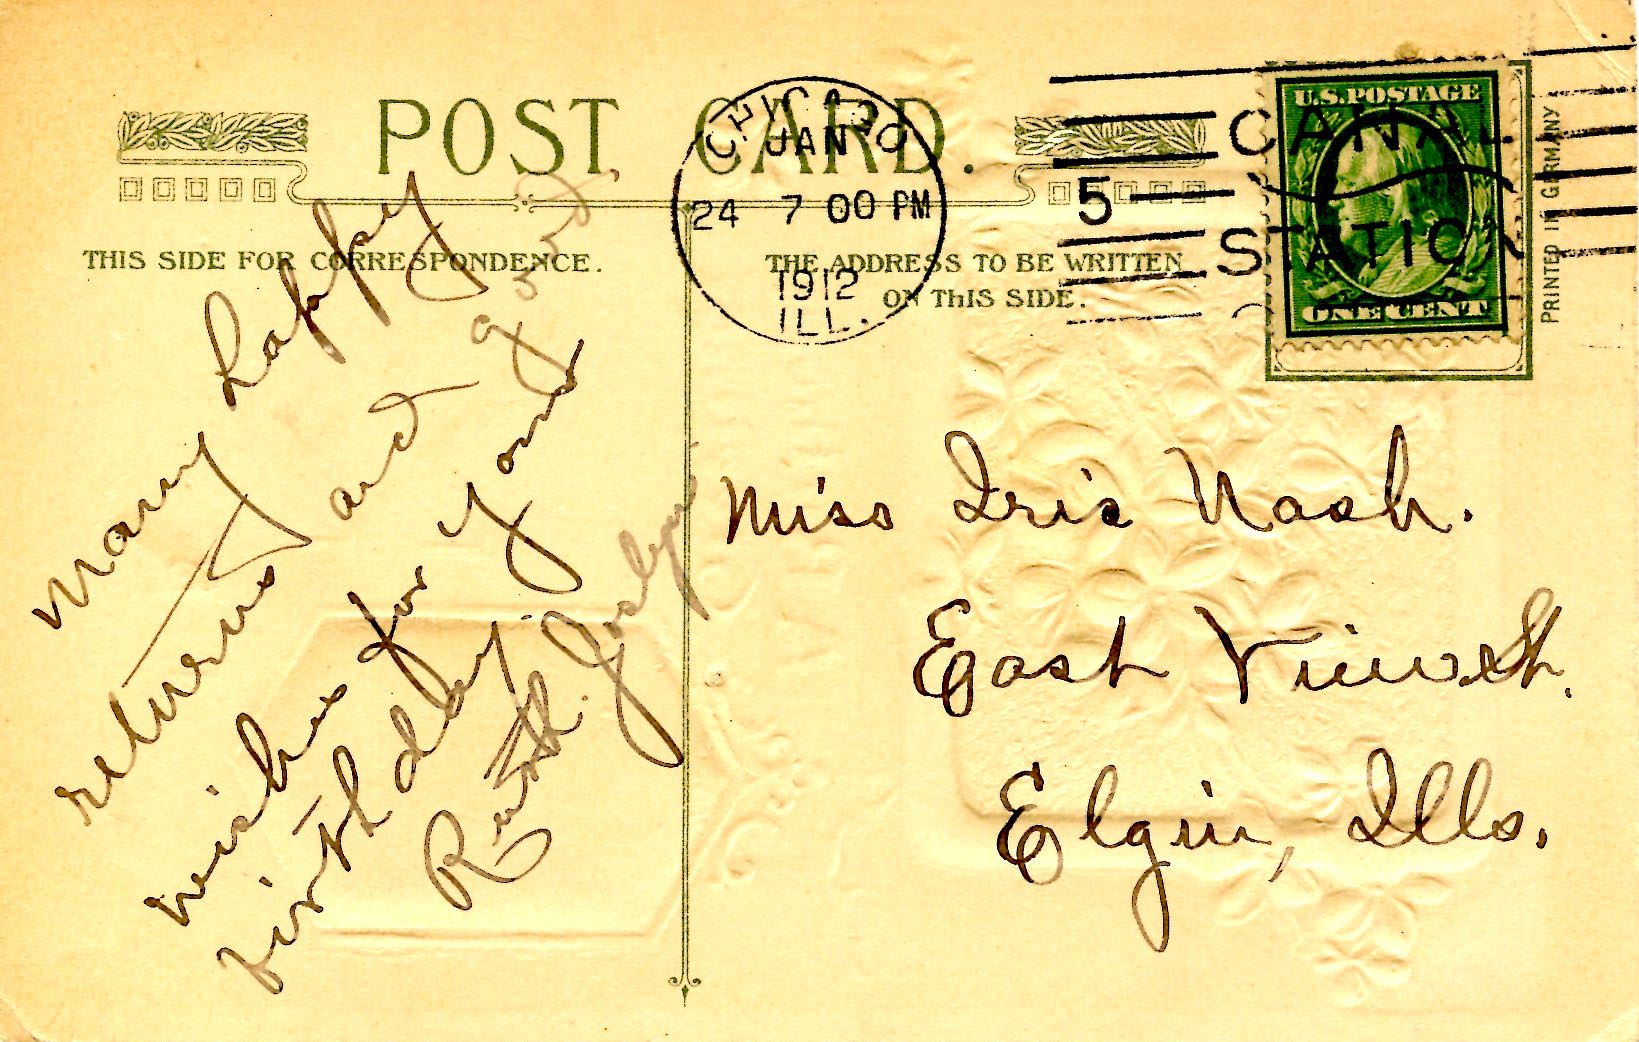 POST CARD.
THIS SIDE FOR CORRESPONDENCE.
THE ADDRESS TO BE WRITTEN
ON THIS SIDE.
CHICAGO
JAN
24 7 00 PM
1912
ILL.
CANAL
5
STATION
U.S. POSTAGE
ONE CENT
PRINTED IN GERMANY
Many happy
returns and good
wishes for your
birthday.
Ruth
Miss Iris Nash.
East View St.
Elgin, Ills.